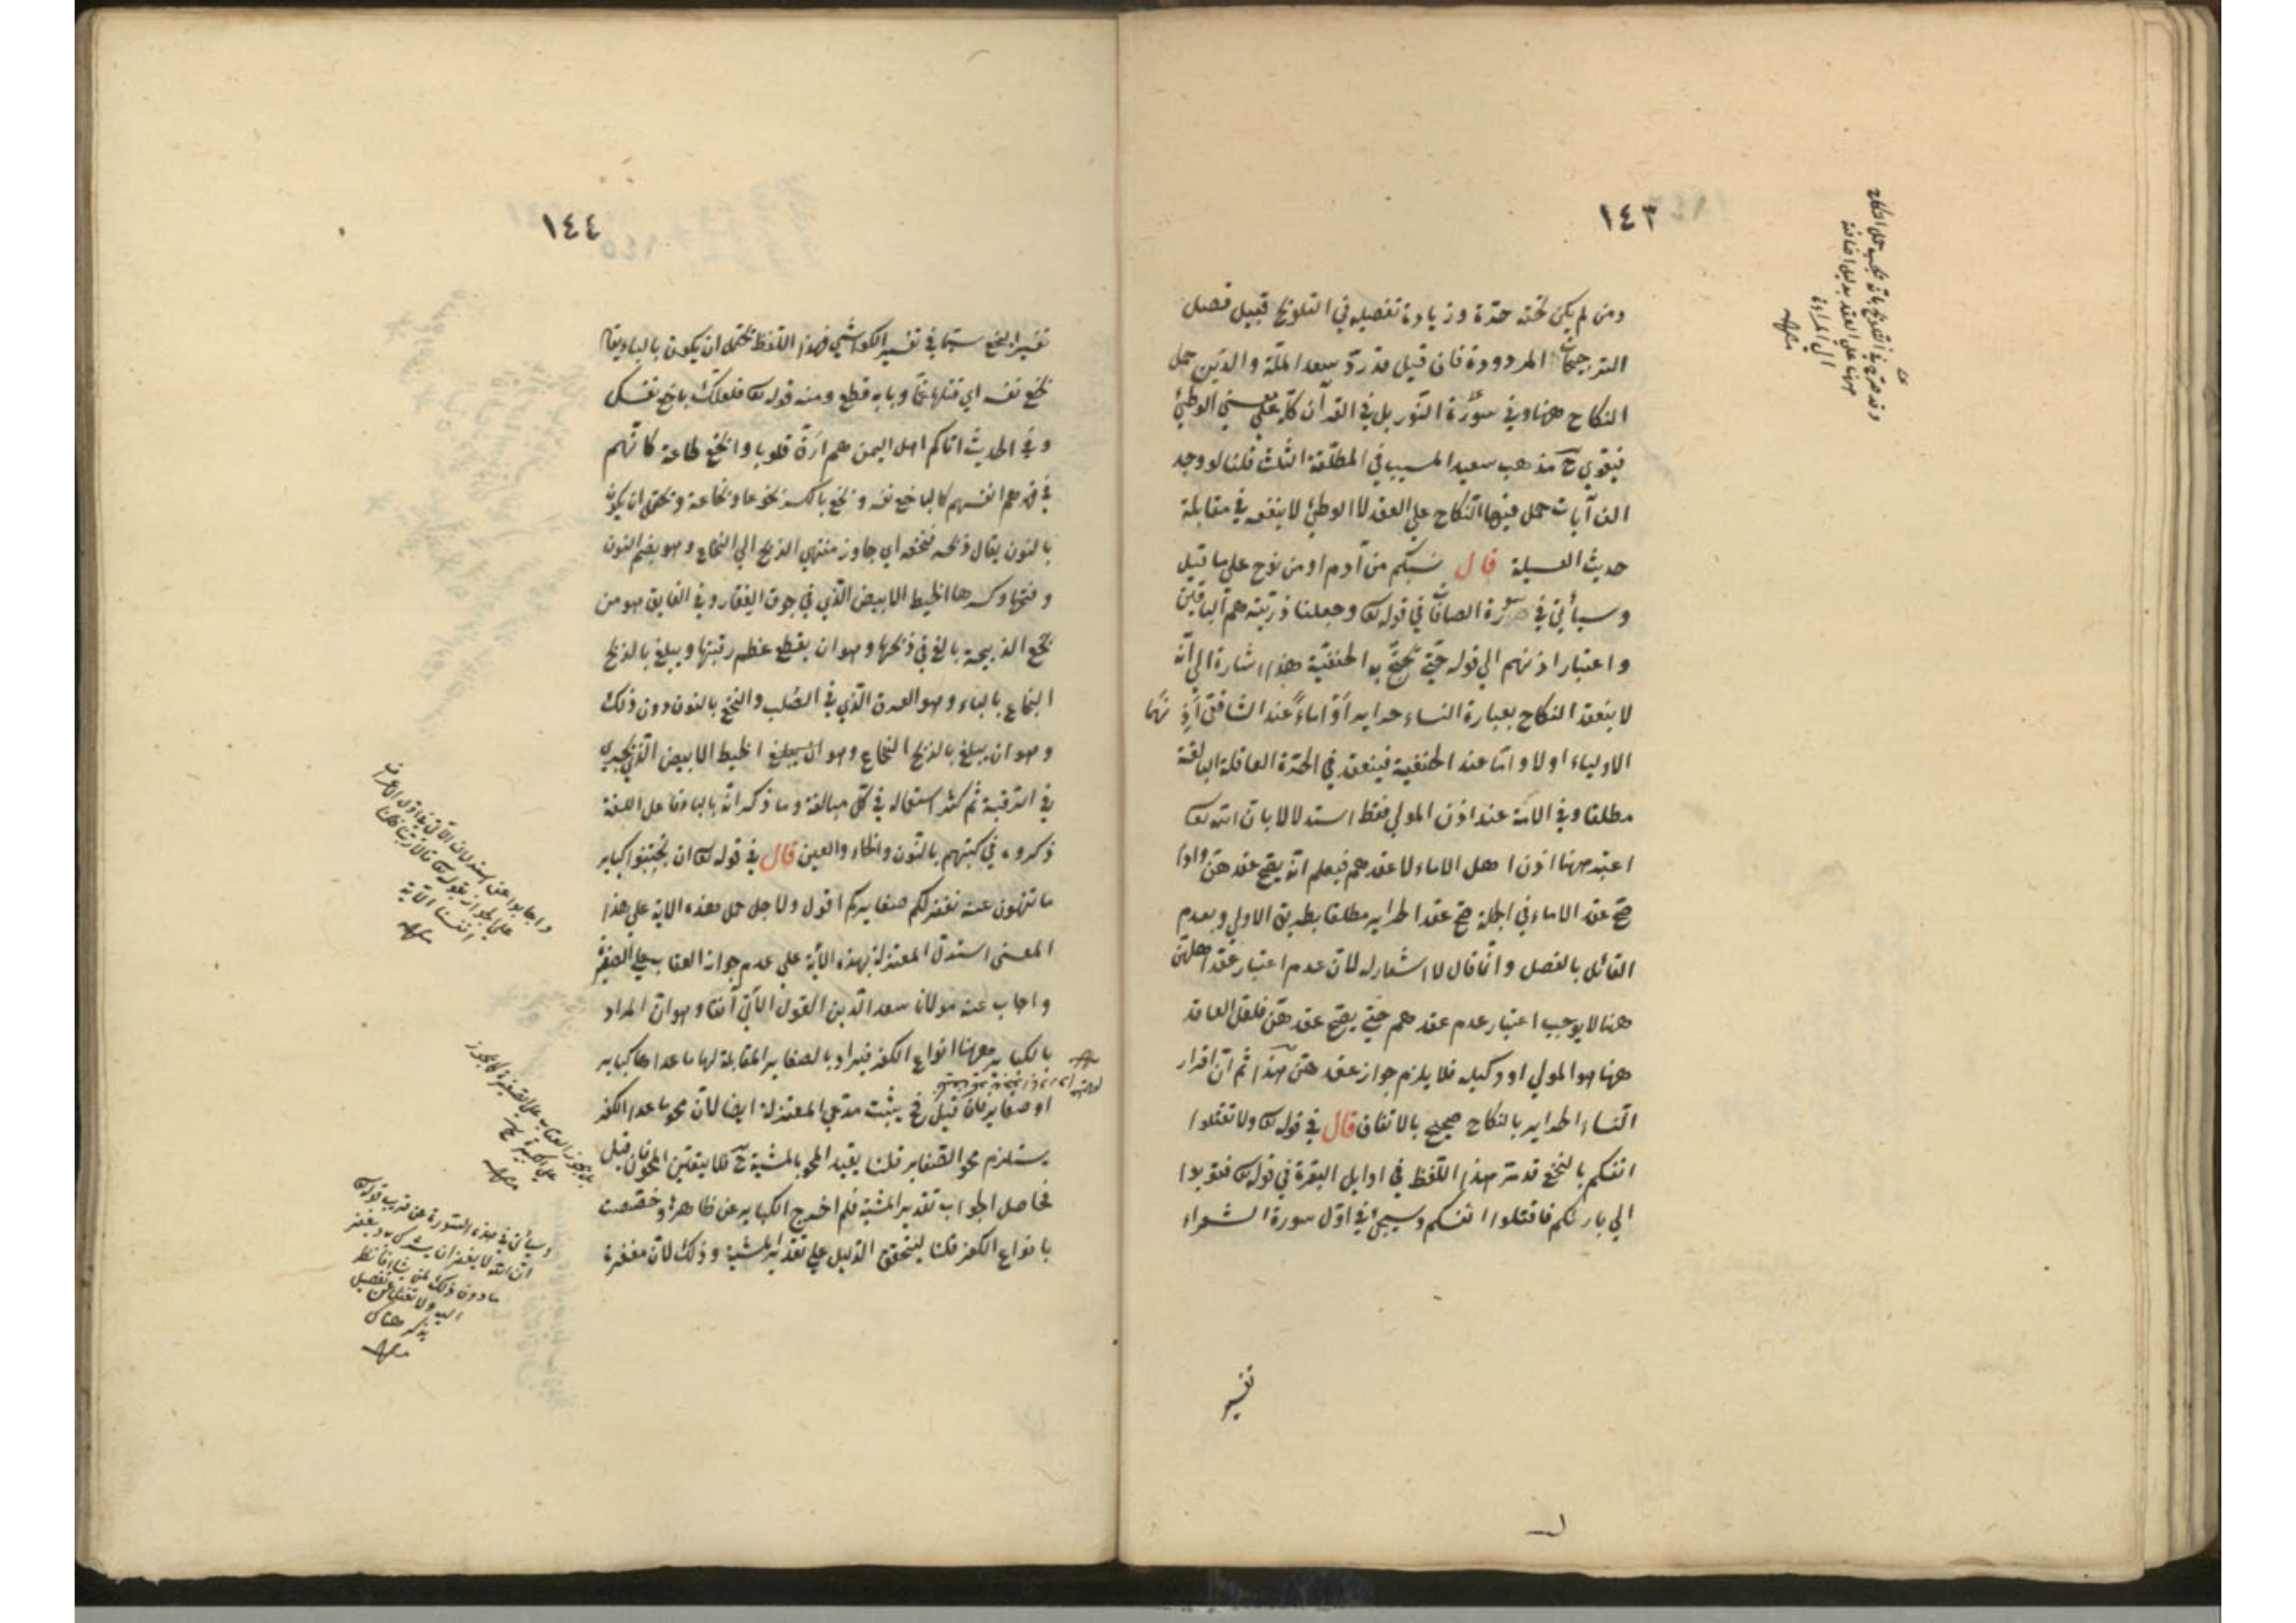 ١٤٣
ومن لم يكن تحته حرّة وزيادة تفصيله في التلويح قبيل فصل
الترجيحات المردودة فان قيل قد ردّ سعد الملّة والدين حمل
النكاح ههنا وفي سورة النّور بل في القرآن كلّه علي معني الوطئ
فيقوي ح مذهب سعيد المسيب في المطلّقة الثلث قلنا لو وجد
الف آيات حمل فيها النّكاح علي العقد لا الوطئ لا ينفعه في مقابلة
حديث العسيلة قال نسبكم من آدم او من نوح علي ما قيل
وسيأتي في سورة الصافات في قوله تع وجعلنا ذرّيته هم الباقين
واعتبار اذنهم الي قوله حتّي يحتجّ به الحنفيّة هذا اشارة الي انّه
لا ينعقد النكاح بعبارة النساء حراير أوْ اماءً عند الشافعي أَذِنَهَا
الاولياء اولا وامّا عند الحنفية فينعقد في الحرّة العاقلة البالغة
مطلقا وفي الامة عند اذن المولي فقط استدلالا بان الله تع
اعتبر ههنا اذن اهل الاماء لا عقدهم فيعلم انّه يصحّ عقدهنّ واذا
صحّ عقد الاماء في الجملة صحّ عقد الحراير مطلقا بطريق الاولي وبعدم
القائل بالفصل وانّما قال لا اشعار له لانّ عدم اعتبار عقد اهلهنّ
هنا لا يوجب اعتبار عدم عقدهم حتّي يصحّ عقدهنّ فلعلّ العاقد
ههنا هو المولي او وكيله فلا يلزم جواز عقدهنّ هذا ثم انّ اقرار
النّساء الحراير بالنكاح صحيح بالاتفاق قال في قوله تع ولا تقتلوا
انفسكم بالبخع قد مرّ هذا اللّفظ في اوايل البقرة في قوله تع فتوبوا
الي بارئكم فاقتلوا انفسكم وسيجئ في اوّل سورة الشعراء
تفسير
وقد صرّح في التلويح بانّه يجب حمل النكاح
ههنا علي العقد بدليل اضافته
الي المراءة
منه
١٤٤
تفسير البخع سيّما في تفسير الكواشي فهذا اللّفظ يحتمل ان يكون بالباء يقال
بخع نفسه اي قتلها غمّا وبابه قطع ومنه قوله تع فلعلّك باخع نفسك
وفي الحديث اتاكم اهل اليمن هم ارقّ قلوبا وابخع طاعة كانّهم
في قهرهم انفسهم كالباخع نفسه وبخع بالكسر بخوعا وبخاعة ويحتمل ان يكون
بالنون يقال ذبحه فنخعه اي جاوز منتهي الذبح الي النخاع وهو بضم النون
وفتحها وكسرها الخيط الابيض الّذي في جوف الفقار وفي الفايق هو من
بخع الذبيحة بالغ في ذبحها وهو ان يقطع عظم رقبتها ويبلغ بالذبح
البخاع بالباء وهو العرق الّذي في الصّلب والنخع بالنون دون ذلك
وهو ان يبلغ بالذبح النخاع وهو ان يبلغ الخيط الابيض الّذي يجري
في الرقبة ثم كثر استعماله في كلّ مبالغة وما ذكر انّه بالباء فاهل اللغة
ذكروه في كتبهم بالنّون والخاء والعين قال في قوله تع ان تجتنبوا كباير
ما تنهون عنه نغفر لكم صغايركم اقول ولاجل حمل هذه الاية علي هذا
المعني استدلّ المعتزلة بهذه الآية علي عدم جواز العقاب علي الصغير
واجاب عنه مولانا سعد الدّين القول الآتي آنفا وهو انّ المراد
بالكباير ههنا انواع الكفر فيراد بالصغاير المقابلة لها ما عداها كباير
او صغاير فان قيل فح يثبت مدّعي المعتزلة ايضا لانّ محو ما عدا الكفر
يستلزم محو الصّغاير قلنا يقيد المحو بالمشية ح فلا يتعيّن المحو فان قيل
فحاصل الجواب تقدير المشية فلم اخرج الكباير عن ظاهرها وخصّصت
بانواع الكفر قلنا ليتحقّق الدّليل علي تقدير المشية وذلك لانّ مغفرة
منه
علي الجواز بقوله تع قالا ربنا ظلمنا
انفسنا الآية
منه
علي الكبيرة
منه
وسيأتي في هذه السّورة عن قريب قوله تع
انّ الله لا يغفر ان يشرك به ويغفر
ما دون ذلك لمن يشاء فانظر
اليه ولا تغفل عن تفصيل
يذكر هناك
منه